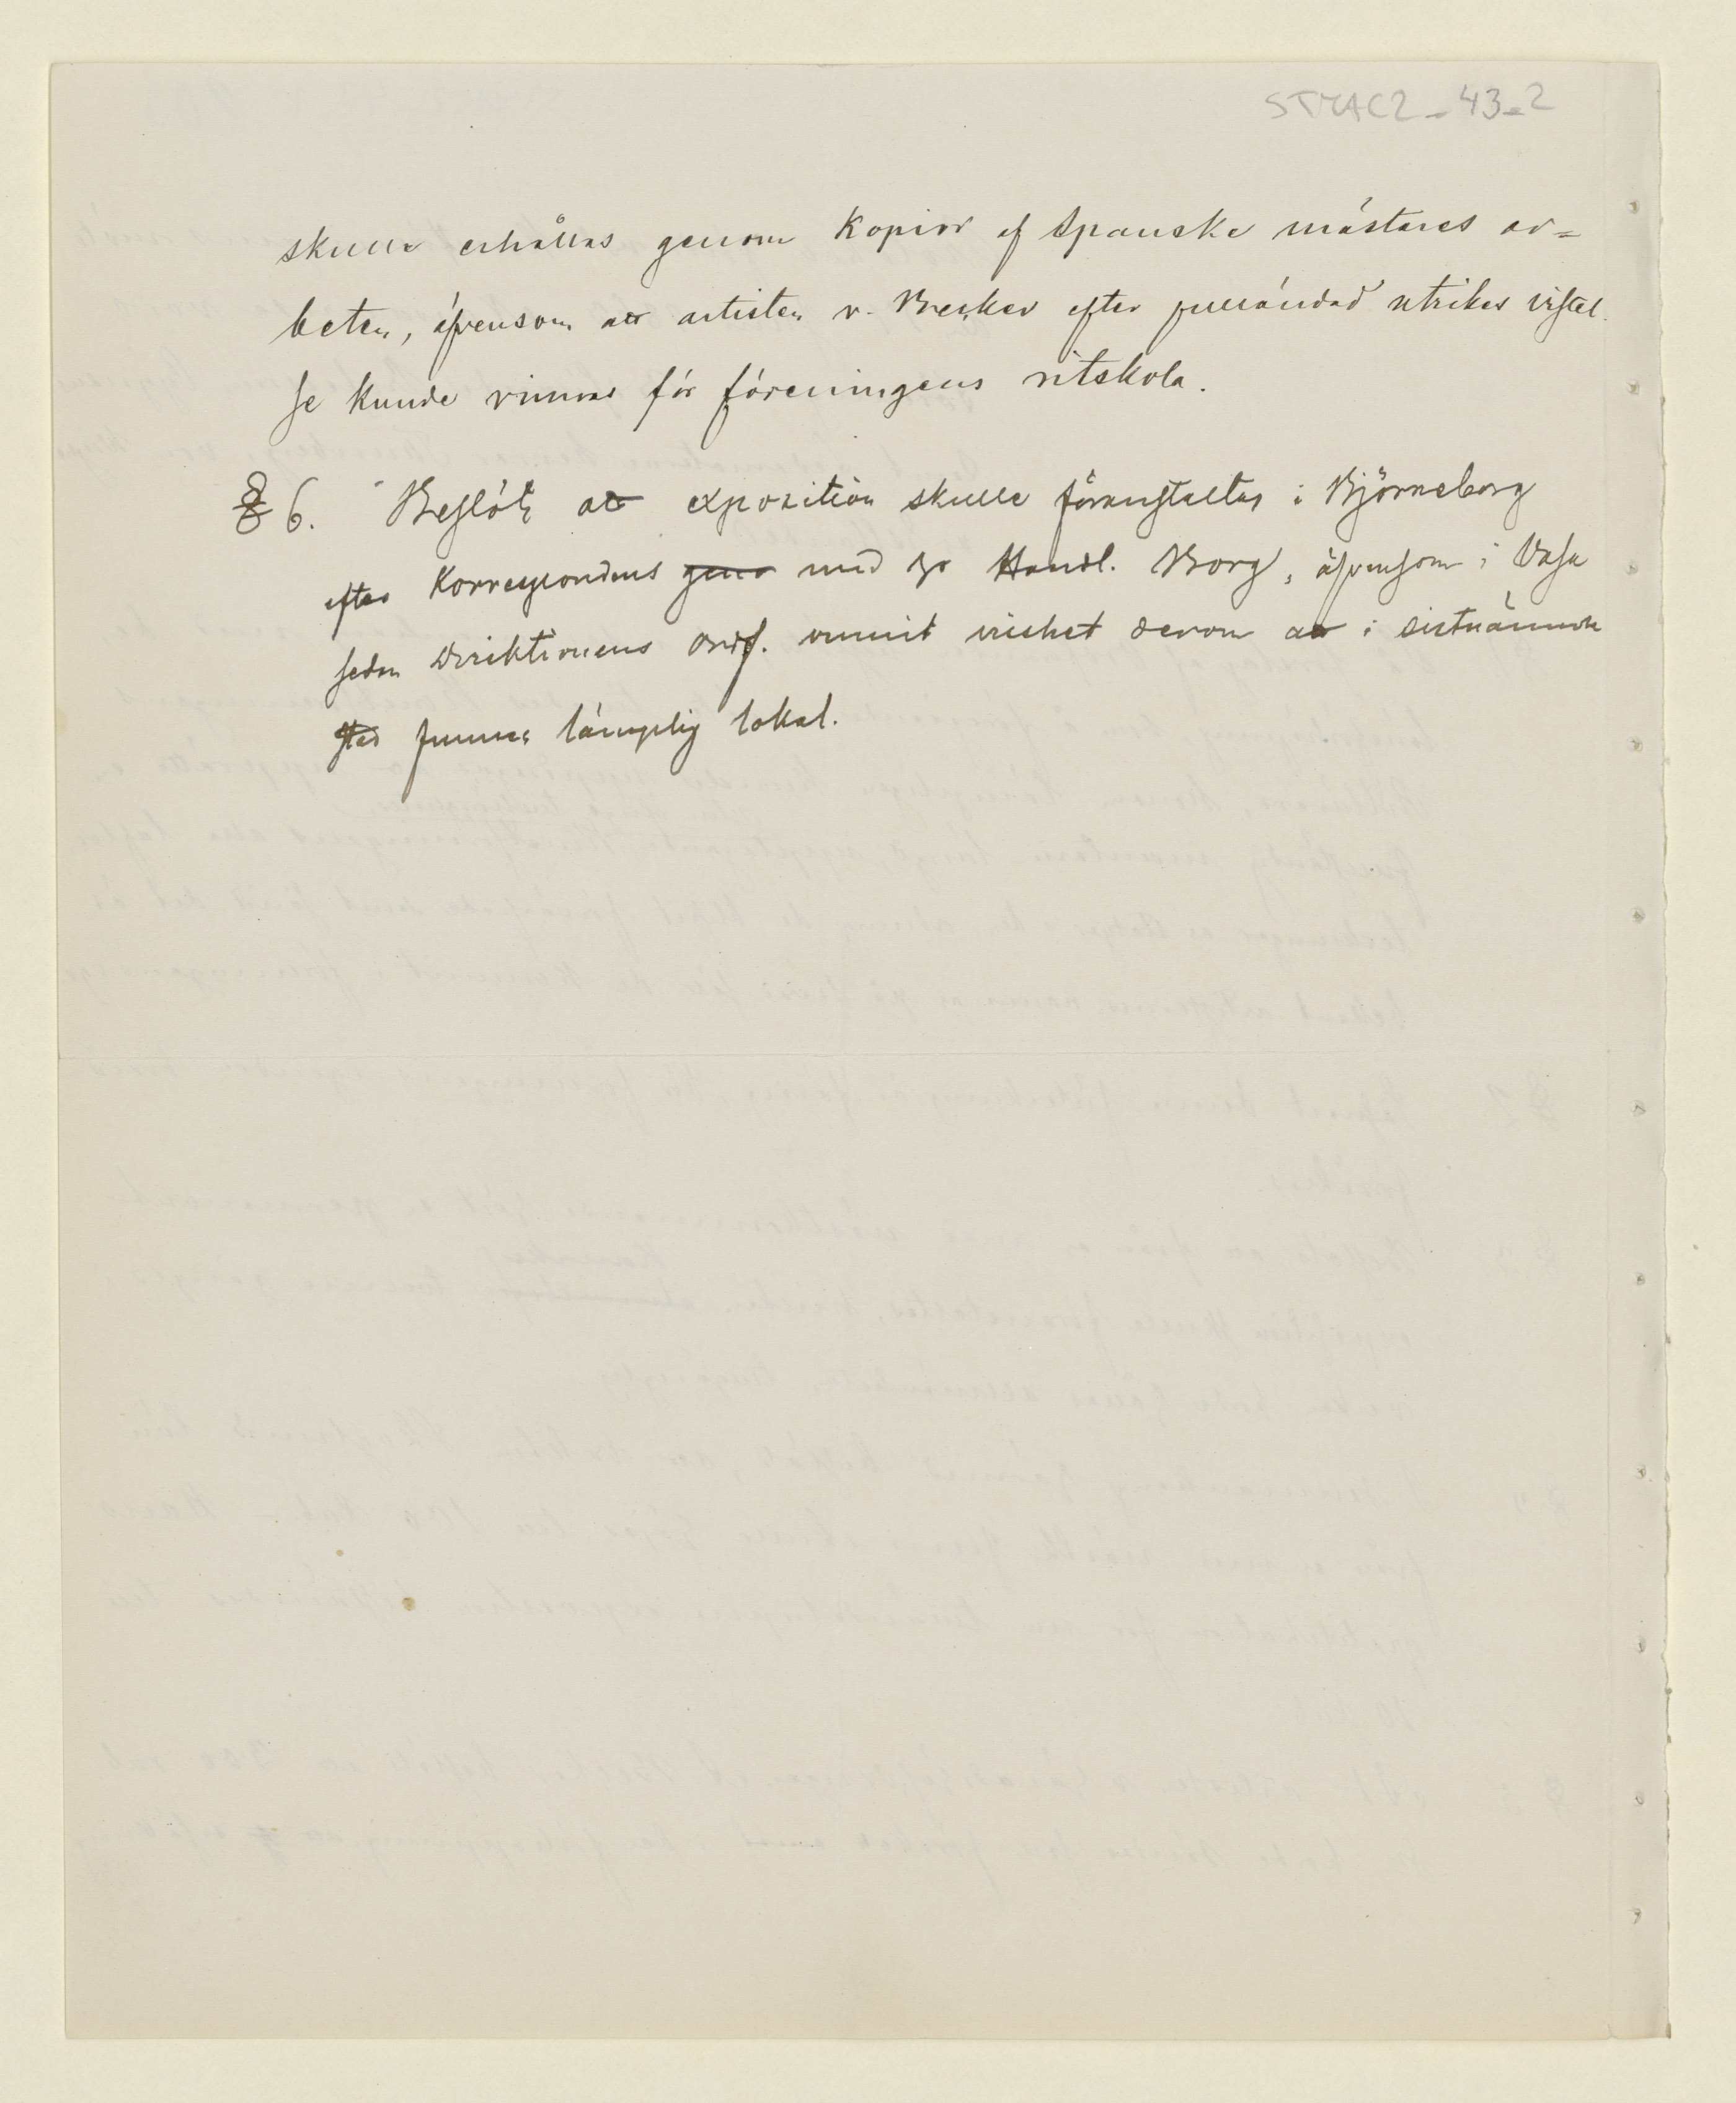 STYAC2_43_2
skulle erhållas genom kopior af Spanske mästares ar=
beten, äfvensom att artisten v. Becker efter fulländad utrikes vistel-
se kunde vinnas för föreningens ritskola.
§ 6. Beslöts att exposition skulle föranstaltas i Björneborg
efter korrespondens geno med Hr Handl. Borg, äfvensom i Vasa
sedan Direktionens Ordf. vunnit visshet derom att i sistnämnde
stad funnes lämplig lokal.